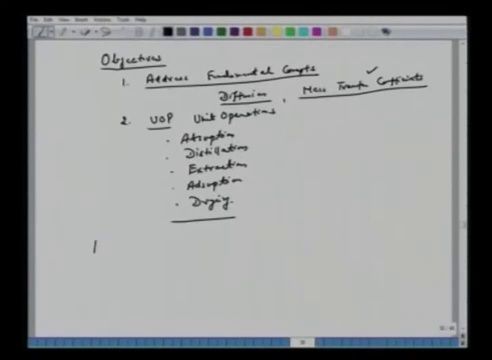 Objectives
1. Address Fundamental Concepts
Diffusion, Mass Transfer Coefficients
2. UOP Unit Operations
Absorption
Distillation
Extraction
Adsorption
Drying